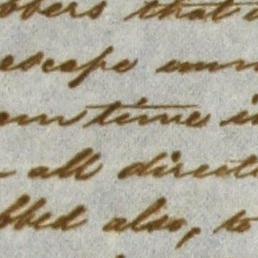 bbers that
escape
time
all directi
bbed also, to